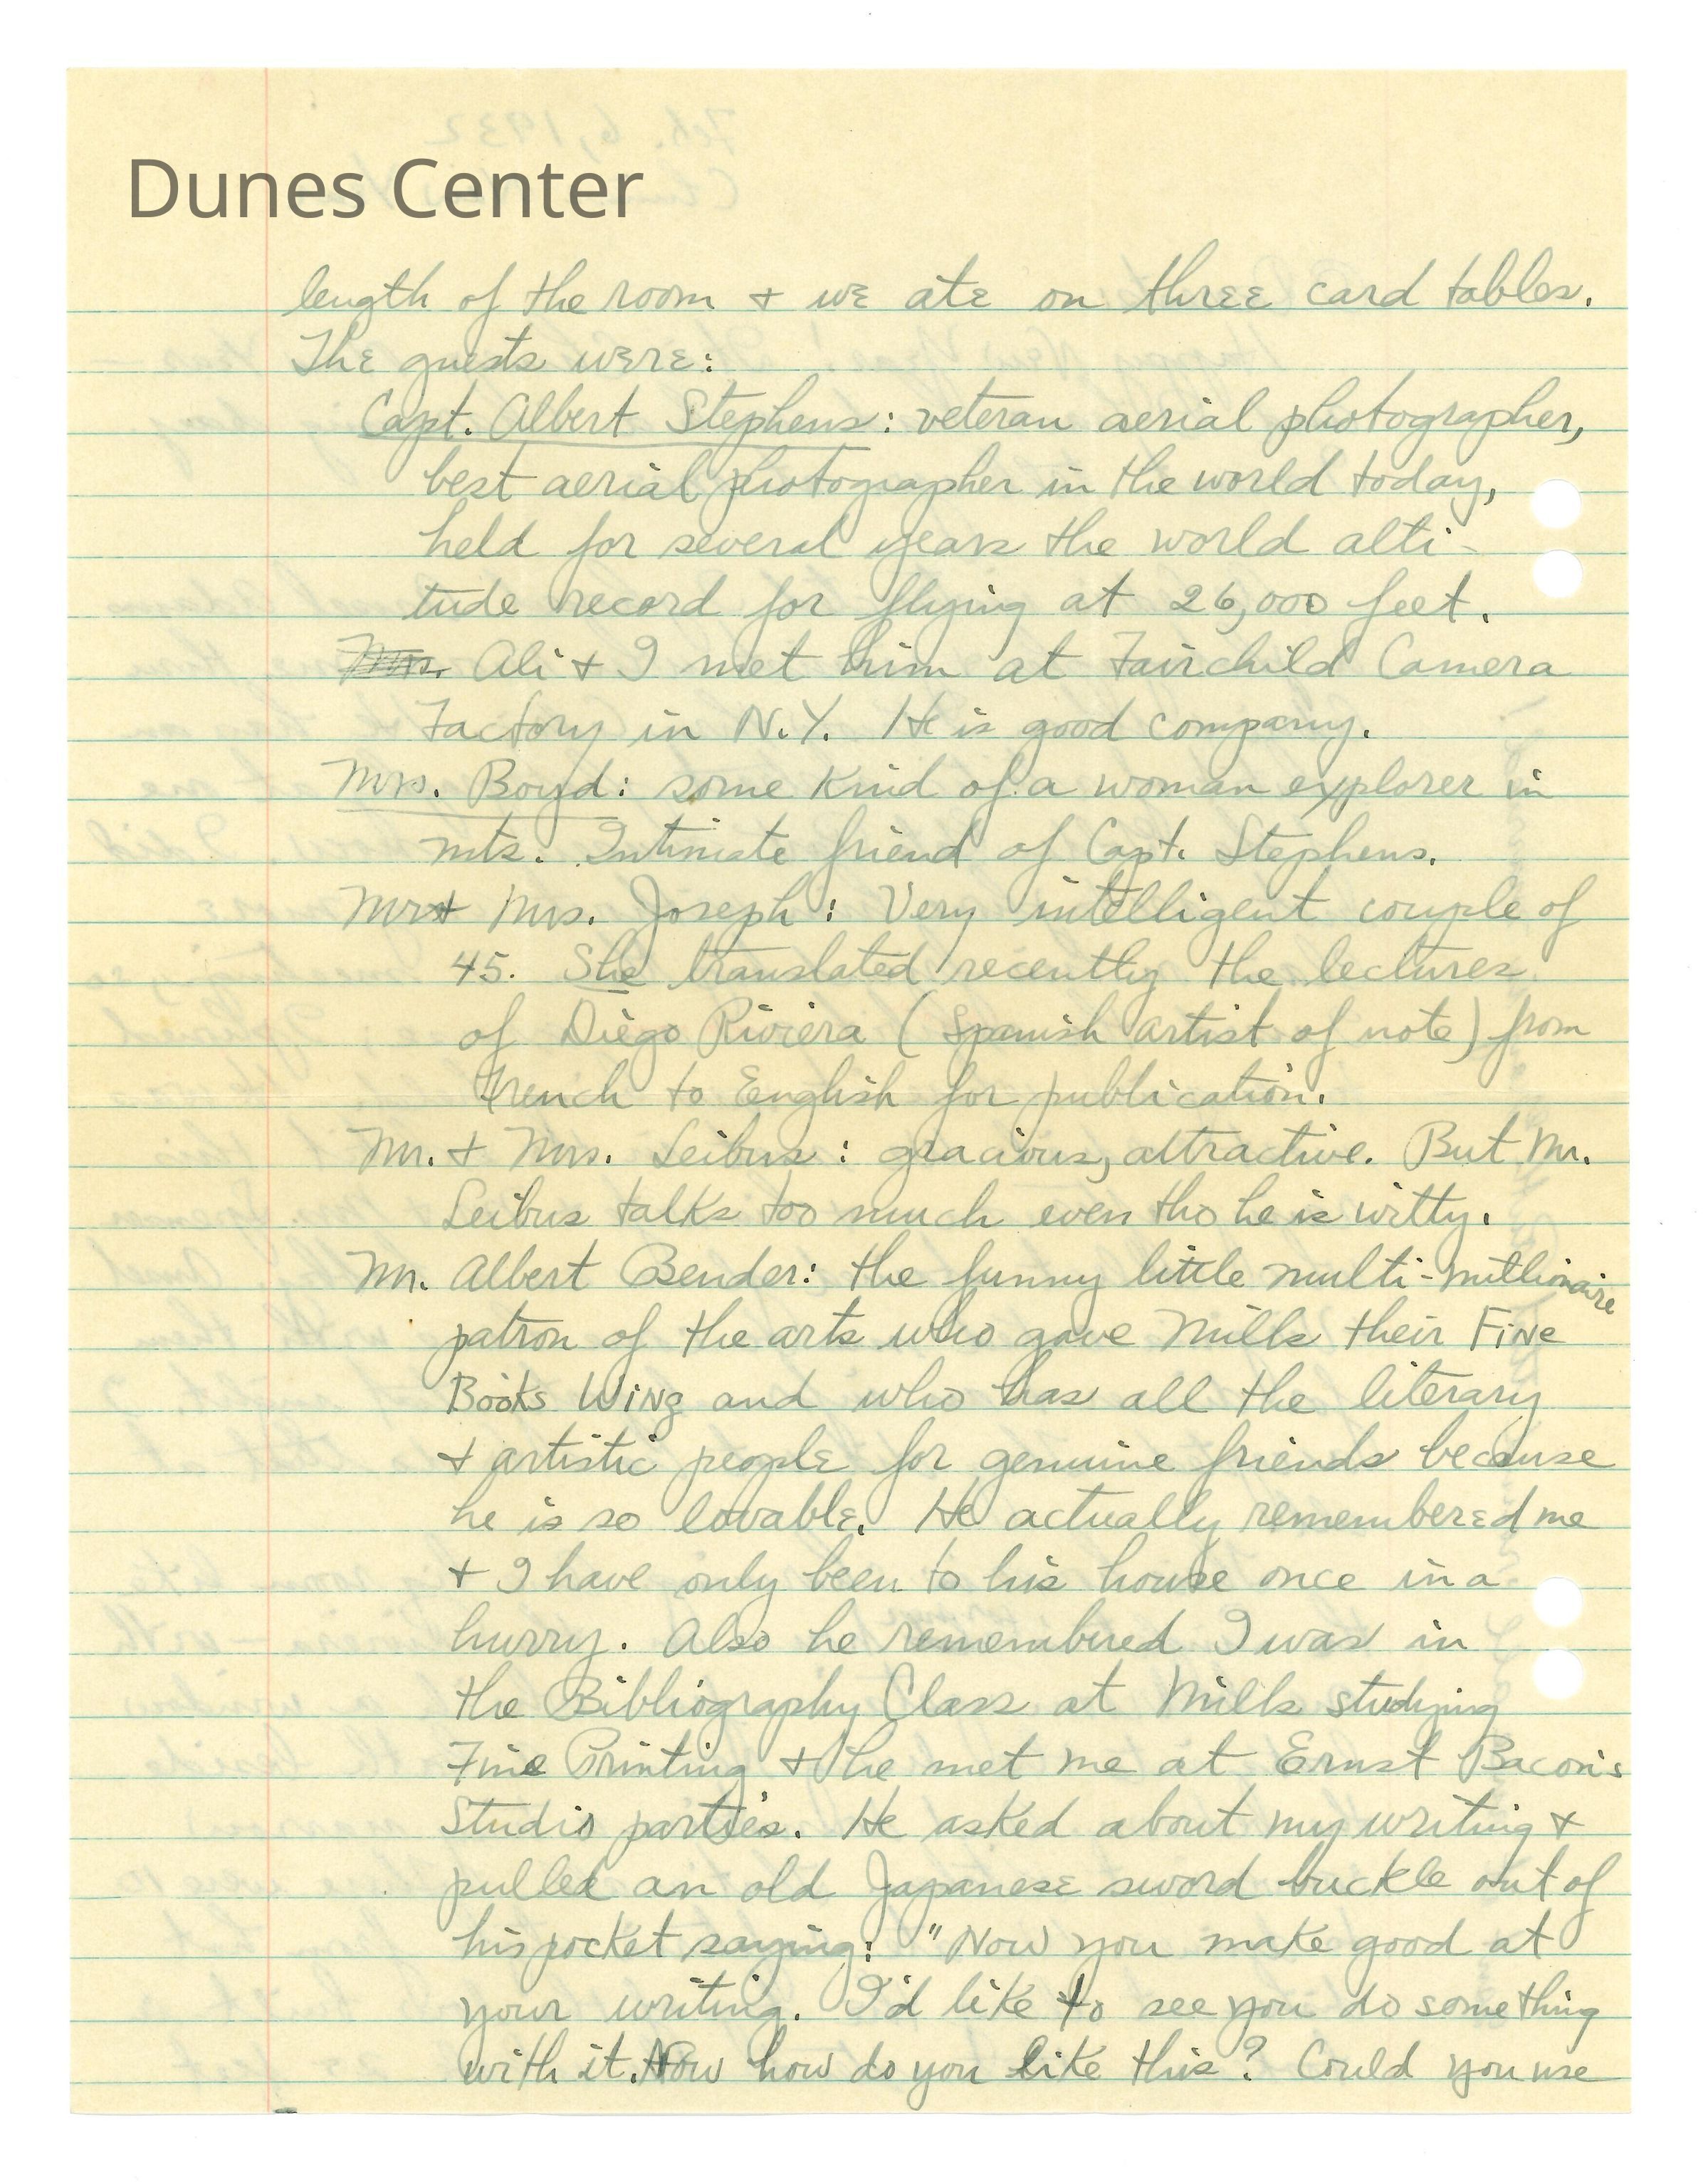 Dunes Center
length of the room + we ate on three card tables.
The guests were:
Capt. Albert Stephens: veteran aerial photographer,
best aerial photographer in the world today,
held for several years the world alti-
tude record for flying at 26,000 feet.
Mrs. Ali + I met him at Fairchild Camera
Factory in N.Y. He is good company.
Mrs. Boyd: some kind of a woman explorer in
mts. Intimate friend of Capt. Stephens.
Mr + Mrs. Joseph: Very intelligent couple of
45. She translated recently the lectures
of Diego Riviera (Spanish artist of note) from
French to English for publication.
Mr. + Mrs. Leibus: gracious, attractive. But Mr.
Leibus talks too much even tho he is witty.
Mr. Albert Bender: the funny little multi-millionaire
patron of the arts who gave Mills their Fine
Books Wing and who has all the literary
+ artistic people for genuine friends because
he is so lovable. He actually remembered me
+ I have only been to his house once in a
hurry. Also he remembered I was in
the Bibliography Class at Mills studying
Fine Printing + he met me at Ernst Bacon's
Studio parties. He asked about my writing +
pulled an old Japanese sword buckle out of
his pocket saying: "Now you make good at
your writing. I'd like to see you do something
with it. Now how do you like this? Could you use